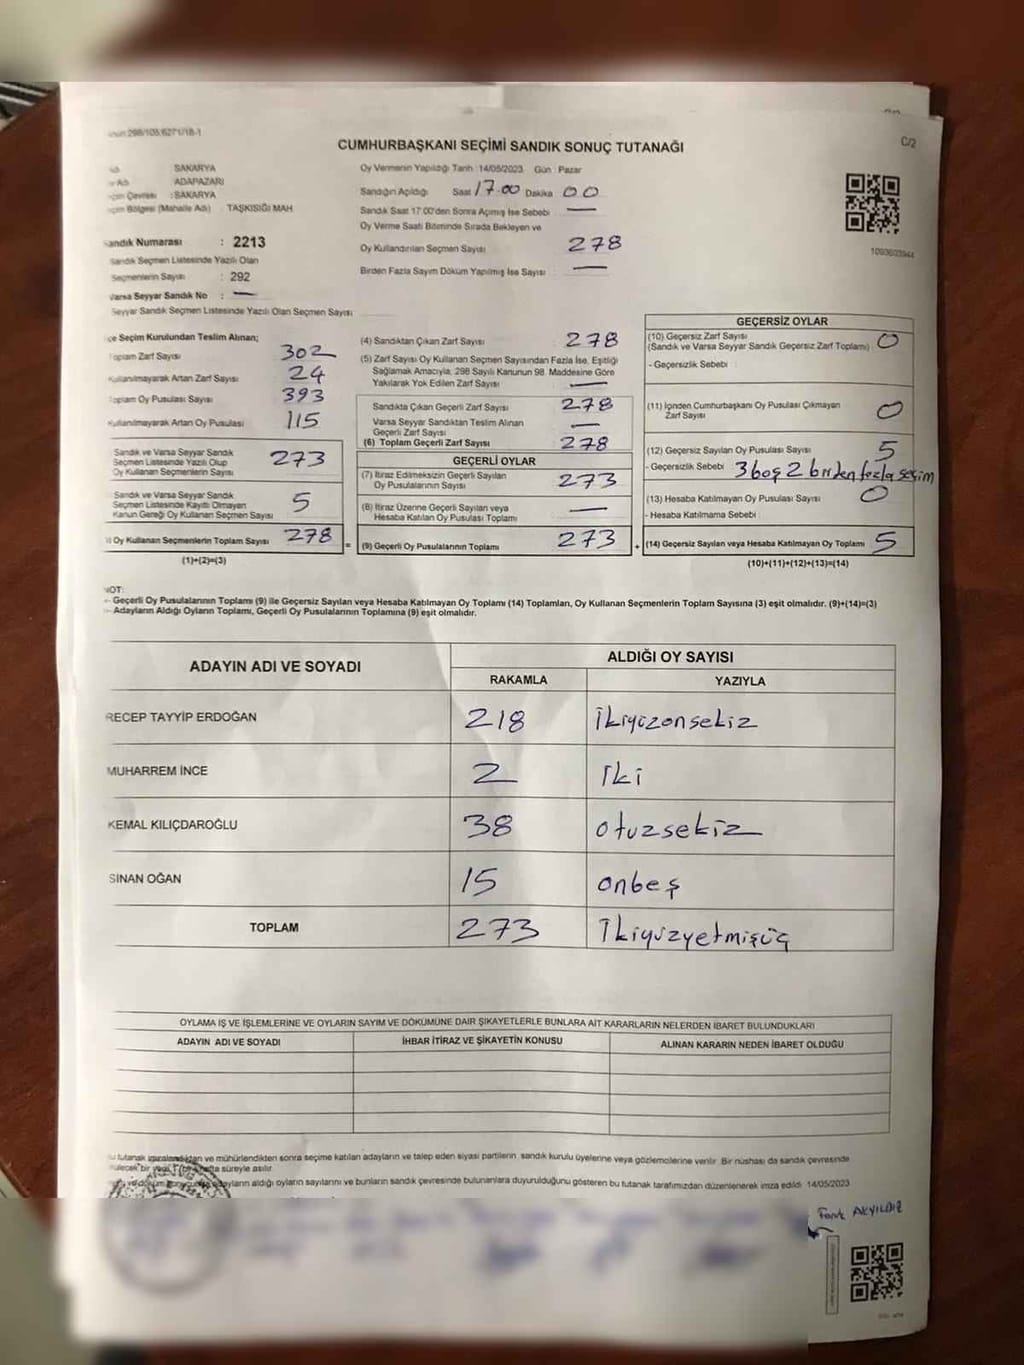 CUMHURBAŞKANI SEÇİMİ SANDIK SONUÇ TUTANAĞI
C/2
SAKARYA
ADAPAZARI
: SAKARYA
(Mahalle Adı) : TAŞKISIĞI MAH
Oy Vermenin Yapıldığı Tarih :14/05/2023 Gün : Pazar
Sandığın Açıldığı Saat 17.00 Dakika 00
Sandık Saat 17:00'den Sonra Açımış İse Sebebi —
Oy Verme Saati Bitiminde Sırada Bekleyen ve
Oy Kullandırılan Seçmen Sayısı 278
Birden Fazla Sayım Döküm Yapılmış İse Sayısı —
Sandık Numarası : 2213
Sandık Seçmen Listesinde Yazılı Olan
Seçmenlerin Sayısı : 292
Varsa Seyyar Sandık No : —
Seyyar Sandık Seçmen Listesinde Yazılı Olan Seçmen Sayısı
Seçim Kurulundan Teslim Alınan;
Toplam Zarf Sayısı 302
Kullanılmayarak Artan Zarf Sayısı 24
Toplam Oy Pusulası Sayısı 393
Kullanılmayarak Artan Oy Pusulası 115
Sandık ve Varsa Seyyar Sandık
Seçmen Listesinde Yazılı Olup
Oy Kullanan Seçmenlerin Sayısı 273
Sandık ve Varsa Seyyar Sandık
Seçmen Listesinde Kayıtlı Olmayan
Kanun Gereği Oy Kullanan Seçmen Sayısı 5
Oy Kullanan Seçmenlerin Toplam Sayısı 278
(1)+(2)=(3)
(4) Sandıktan Çıkan Zarf Sayısı 278
(5) Zarf Sayısı Oy Kullanan Seçmen Sayısından Fazla İse, Eşitliği
Sağlamak Amacıyla, 298 Sayılı Kanunun 98. Maddesine Göre
Yakılarak Yok Edilen Zarf Sayısı —
Sandıkta Çıkan Geçerli Zarf Sayısı 278
Varsa Seyyar Sandıktan Teslim Alınan
Geçerli Zarf Sayısı —
(6) Toplam Geçerli Zarf Sayısı 278
GEÇERLİ OYLAR
(7) İtiraz Edilmeksizin Geçerli Sayılan
Oy Pusulalarının Sayısı 273
(8) İtiraz Üzerine Geçerli Sayılan veya
Hesaba Katılan Oy Pusulası Toplamı —
= (9) Geçerli Oy Pusulalarının Toplamı 273
GEÇERSİZ OYLAR
(10) Geçersiz Zarf Sayısı
(Sandık ve Varsa Seyyar Sandık Geçersiz Zarf Toplamı) 0
- Geçersizlik Sebebi :
(11) İçinden Cumhurbaşkanı Oy Pusulası Çıkmayan
Zarf Sayısı 0
(12) Geçersiz Sayılan Oy Pusulası Sayısı 5
- Geçersizlik Sebebi : 3 boş 2 birden fazla seçim
(13) Hesaba Katılmayan Oy Pusulası Sayısı 0
- Hesaba Katılmama Sebebi :
+ (14) Geçersiz Sayılan veya Hesaba Katılmayan Oy Toplamı 5
(10)+(11)+(12)+(13)=(14)
NOT:
- Geçerli Oy Pusulalarının Toplamı (9) ile Geçersiz Sayılan veya Hesaba Katılmayan Oy Toplamı (14) Toplamları, Oy Kullanan Seçmenlerin Toplam Sayısına (3) eşit olmalıdır. (9)+(14)=(3)
- Adayların Aldığı Oyların Toplamı, Geçerli Oy Pusulalarının Toplamına (9) eşit olmalıdır.
ADAYIN ADI VE SOYADI
ALDIĞI OY SAYISI
RAKAMLA YAZIYLA
RECEP TAYYİP ERDOĞAN 218 ikiyüzonsekiz
MUHARREM İNCE 2 iki
KEMAL KILIÇDAROĞLU 38 otuzsekiz
SİNAN OĞAN 15 onbeş
TOPLAM 273 ikiyüzyetmişüç
OYLAMA İŞ VE İŞLEMLERİNE VE OYLARIN SAYIM VE DÖKÜMÜNE DAİR ŞİKAYETLERLE BUNLARA AİT KARARLARIN NELERDEN İBARET BULUNDUKLARI
ADAYIN ADI VE SOYADI İHBAR İTİRAZ VE ŞİKAYETİN KONUSU ALINAN KARARIN NEDEN İBARET OLDUĞU
tutanak imzalandıktan ve mühürlendikten sonra seçime katılan adayların ve talep eden siyasi partilerin, sandık kurulu üyelerine veya gözlemcilerine verilir. Bir nüshası da sandık çevresinde
bir hafta süreyle asılır.
adayların aldığı oyların sayılarını ve bunların sandık çevresinde bulunanlara duyurulduğunu gösteren bu tutanak tarafımızdan düzenlenerek imza edildi. 14/05/2023
AKYILDIZ